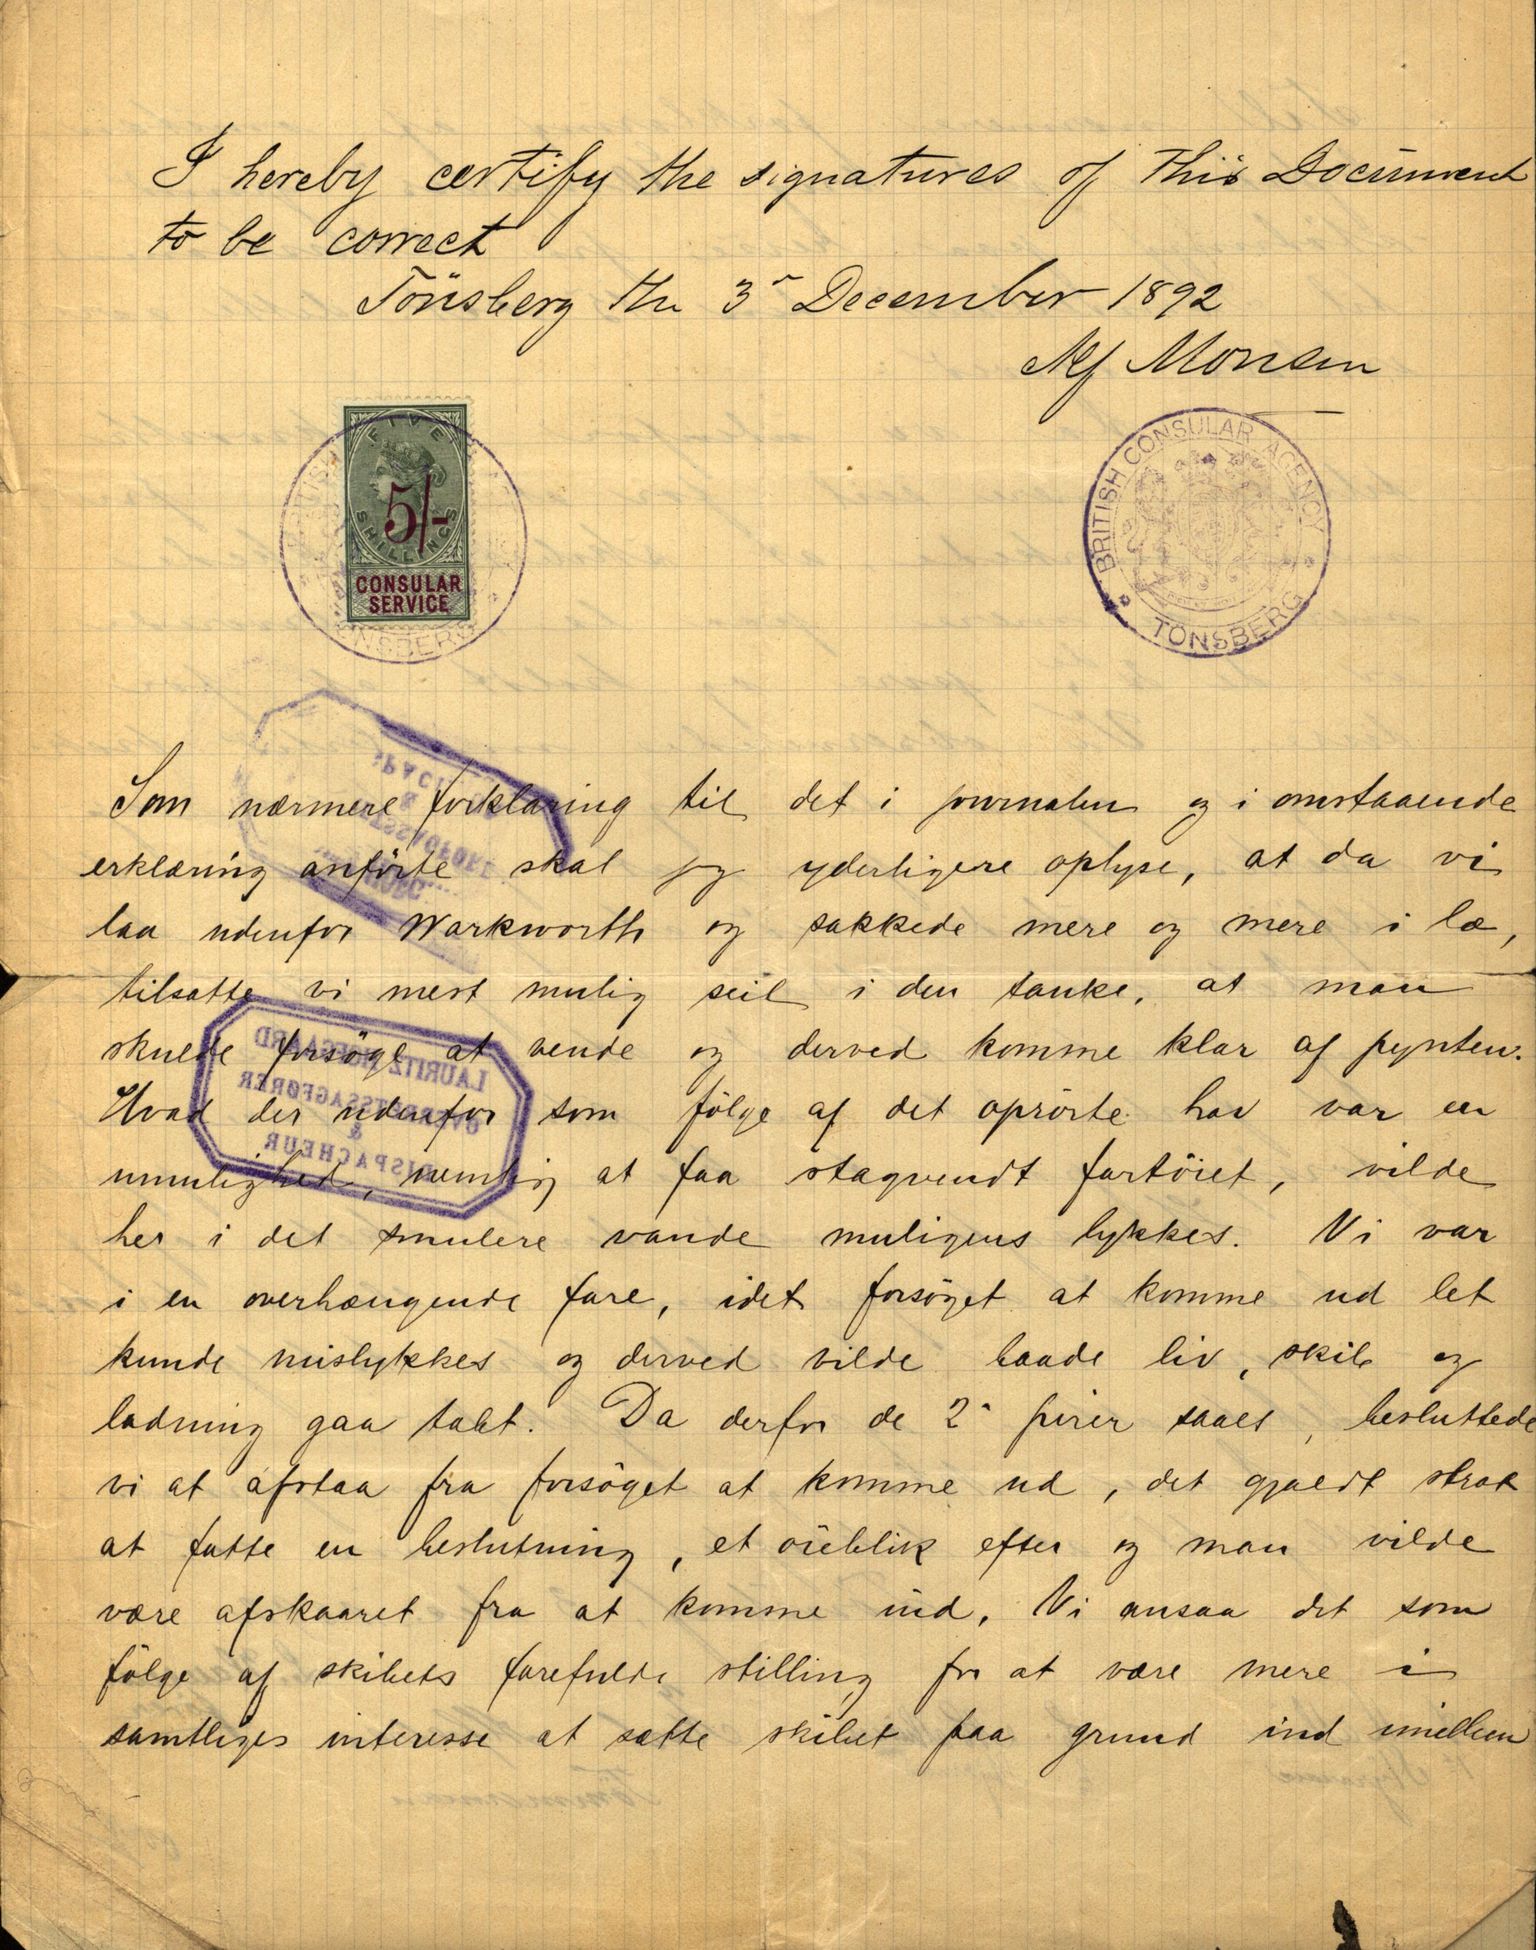 I hereby certify the signatures of this Document
to be correct
Tönsberg the 3r December 1892
Alf Monsen
FIVE
SHILLINGS
5/-
CONSULAR
SERVICE
BRITISH CONSULAR AGENCY
TÖNSBERG
Som nærmere forklaring til det i journalen og i omstaaende
erklæring anförte skal jeg yderligere oplyse, at da vi
laa udenfor Warkworth og sakkede mere og mere i læ,
tilsatte vi mest mulig seil i den tanke, at man
skulde forsöge at vende og derved komme klar af pynten.
Hvad der udenfor som fölge af det oprörte hav var en
umulighed, nemlig at faa stagvendt fartöiet, vilde
her i det smulere vande muligens lykkes. Vi var
i en overhængende fare, idet forsöget at komme ud let
kunde mislykkes og derved vilde baade liv, skib og
ladning gaa tabt. Da derfor de 2 pirer saaes, besluttede
vi at afstaa fra forsöget at komme ud, det gjaldt strax
at fatte en beslutning, et öieblik efter og man vilde
være afskaaret fra at komme ind. Vi ansaa det som
fölge af skibets farefulde stilling for at være mere i
samtliges interesse at sætte skibet paa grund ind imellem
LAURITZ RUSGAARD
OVERRETSSAGFØRER
&
DISPACHEUR